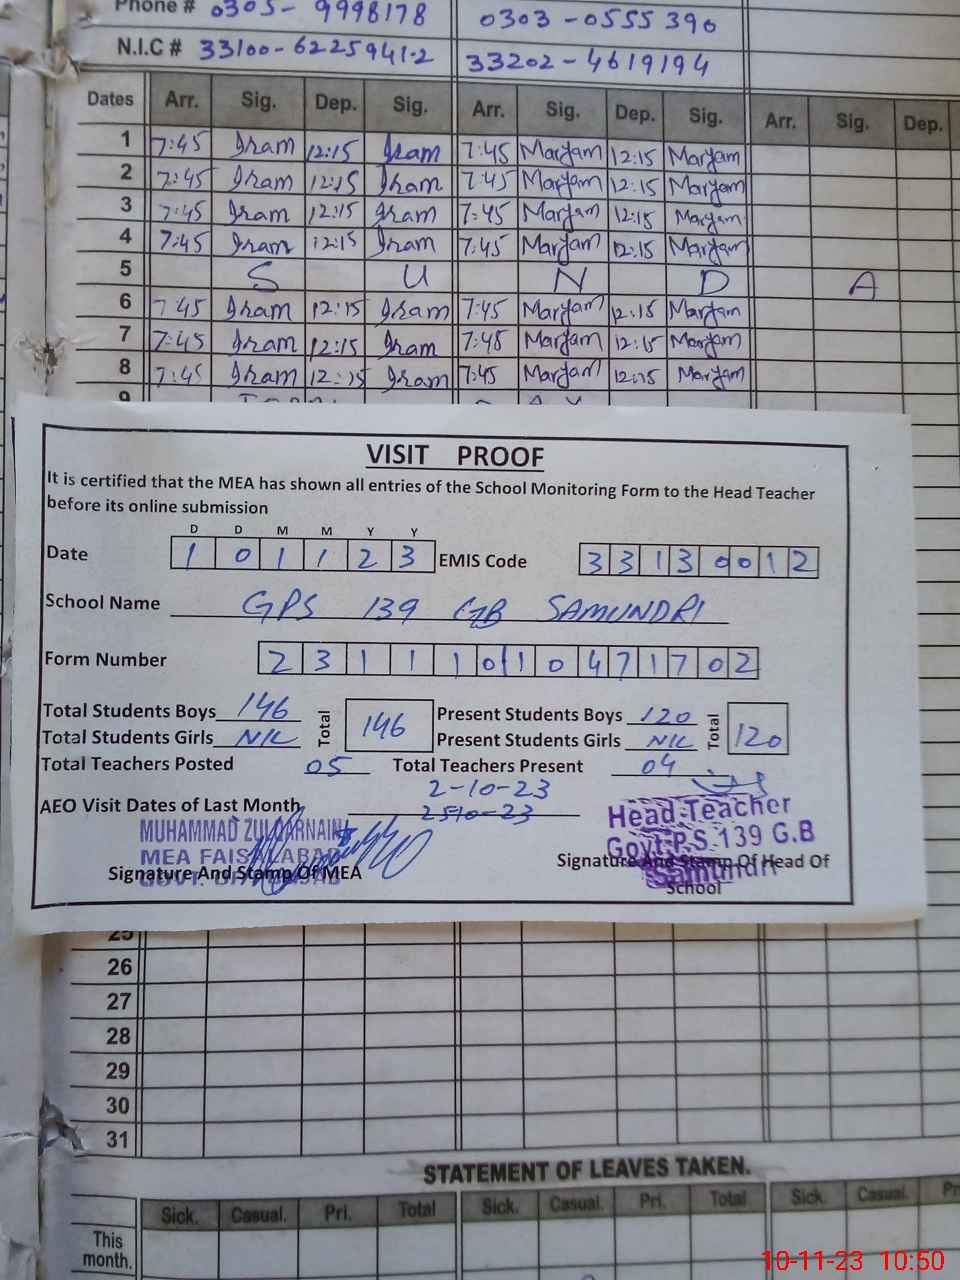 Phone # 0305- 9998178 0303-0555390
N.I.C # 33100-6225941-2 33202-4619194
Dates Arr. Sig. Dep. Sig. Arr. Sig. Dep. Sig. Arr. Sig. Dep.
1 7:45 Iram 12:15 Iram 7:45 Maryam 12:15 Maryam
2 7:45 Iram 12:15 Iram 7:45 Maryam 12:15 Maryam
3 7:45 Iram 12:15 Iram 7:45 Maryam 12:15 Maryam
4 7:45 Iram 12:15 Iram 7:45 Maryam 12:15 Maryam
5 S U N D A
6 7:45 Iram 12:15 Iram 7:45 Maryam 12:15 Maryam
7 7:45 Iram 12:15 Iram 7:45 Maryam 12:15 Maryam
8 7:45 Iram 12:15 Iram 7:45 Maryam 12:15 Maryam
9
VISIT PROOF
It is certified that the MEA has shown all entries of the School Monitoring Form to the Head Teacher
before its online submission
D D M M Y Y
Date 1 0 1 1 2 3 EMIS Code 3 3 1 3 0 0 1 2
School Name GPS 139 GB SAMUNDRI
Form Number 2 3 1 1 1 0 1 0 4 7 1 7 0 2
Total Students Boys 146 Total 146 Present Students Boys 120 Total 120
Total Students Girls NIL Present Students Girls NIL
Total Teachers Posted 05 Total Teachers Present 04
2-10-23
AEO Visit Dates of Last Month 25-10-23
MUHAMMAD ZULQARNAIN Head Teacher
MEA FAISALABAD Govt. P.S. 139 G.B
Signature And Stamp Of MEA Signature And Stamp Of Head Of
Samundri
School
25
26
27
28
29
30
31
STATEMENT OF LEAVES TAKEN.
Sick. Casual. Pri. Total Sick. Casual. Pri. Total Sick. Casual.
This
month.
10-11-23 10:50